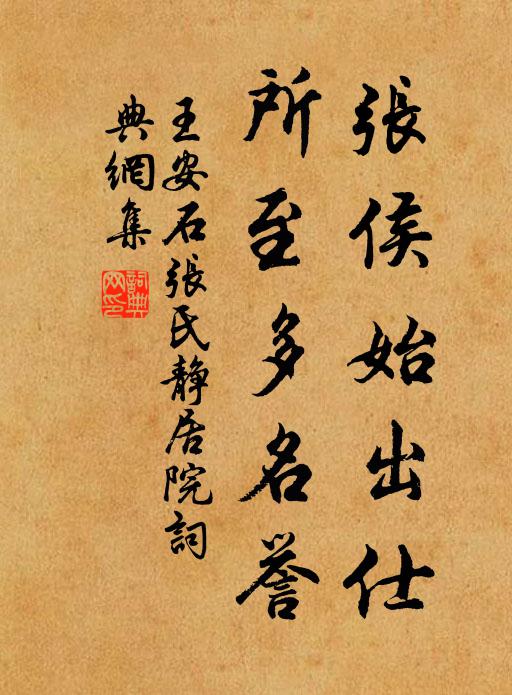 張侯始出仕
所至多名誉
王安石張氏靜居院詞
典網集
詞典
网印